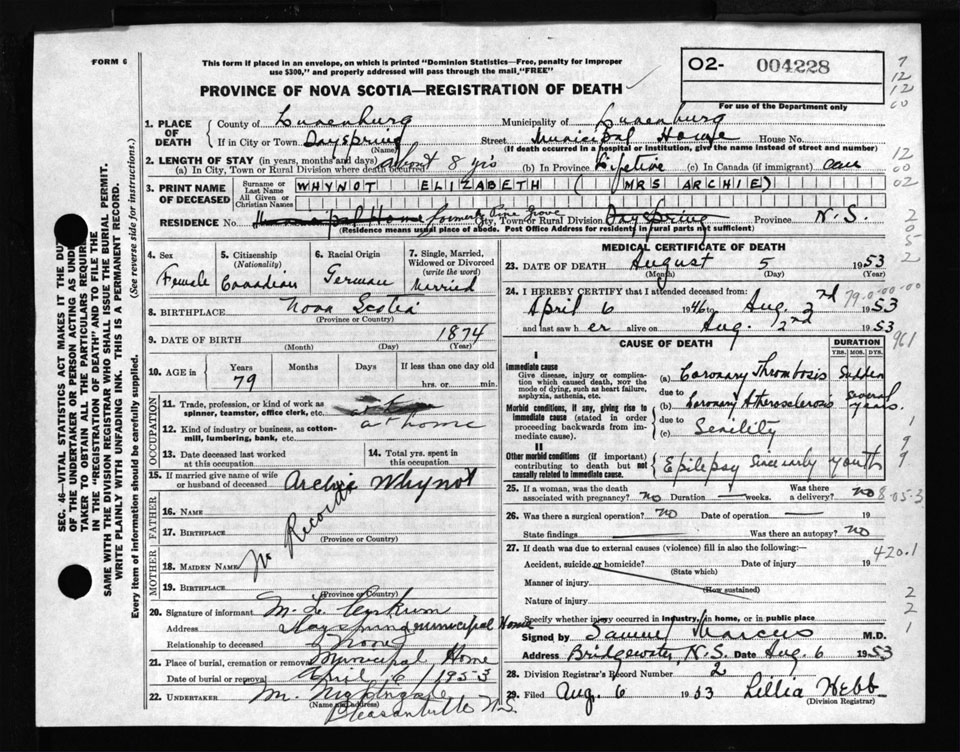 FORM 6
This form if placed in an envelope, on which is printed "Dominion Statistics—Free, penalty for improper
use $300," and properly addressed will pass through the mail, "FREE"
PROVINCE OF NOVA SCOTIA—REGISTRATION OF DEATH
O2- 004228
For use of the Department only
7
12
12
00
12
00
02
2
05
2
SEC. 46—VITAL STATISTICS ACT MAKES IT THE DU
OF THE UNDERTAKER OR PERSON ACTING AS UND
TAKER TO OBTAIN ALL THE PARTICULARS REQUIR
IN THE "REGISTRATION OF DEATH" AND TO FILE THE
SAME WITH THE DIVISION REGISTRAR WHO SHALL ISSUE THE BURIAL PERMIT.
WRITE PLAINLY WITH UNFADING INK. THIS IS A PERMANENT RECORD.
Every item of information should be carefully supplied. (See reverse side for instructions.)
1. PLACE OF DEATH
County of Lunenburg Municipality of Lunenburg
If in City or Town Dayspring Street Municipal Home House No.
(Name) (If death occurred in a hospital or institution, give the name instead of street and number)
2. LENGTH OF STAY (in years, months and days)
(a) In City, Town or Rural Division where death occurred about 8 yrs (b) In Province Lifetime (c) In Canada (if immigrant)
3. PRINT NAME OF DECEASED
Surname or Last Name
All Given or Christian Names
WHYNOT ELIZABETH (MRS ARCHIE)
RESIDENCE No. Municipal Home formerly Pine Grove City, Town or Rural Division Dayspring Province N.S.
(Residence means usual place of abode. Post Office Address for residents in rural parts not sufficient)
4. Sex
Female
5. Citizenship
(Nationality)
Canadian
6. Racial Origin
German
7. Single, Married,
Widowed or Divorced
(write the word)
Married
8. BIRTHPLACE Nova Scotia
(Province or Country)
9. DATE OF BIRTH 1874
(Month) (Day) (Year)
10. AGE in
Years Months Days If less than one day old
79 hrs. or min.
OCCUPATION
11. Trade, profession, or kind of work as
spinner, teamster, office clerk, etc.
12. Kind of industry or business, as cotton-
mill, lumbering, bank, etc. at home
13. Date deceased last worked
at this occupation
14. Total yrs. spent in
this occupation
15. If married give name of wife
or husband of deceased Archie Whynot
FATHER
16. Name
17. BIRTHPLACE
(Province or Country)
No Records
MOTHER
18. MAIDEN NAME
19. BIRTHPLACE
(Province or Country)
20. Signature of informant
Address Dayspring Municipal Home
Relationship to deceased None
21. Place of burial, cremation or removal Municipal Home
Date of burial or removal April 6, 1953
22. UNDERTAKER M. Nightingale
(Name and address)
Pleasantville N.S.
MEDICAL CERTIFICATE OF DEATH
23. DATE OF DEATH August 5 1953
(Month) (Day) (Year)
24. I HEREBY CERTIFY that I attended deceased from:
April 6 1946 to Aug. 2nd 1953
79.0.00.00
and last saw her alive on Aug. 2nd 1953
961
CAUSE OF DEATH
DURATION
YRS. MOS. DYS.
I
Immediate cause
Give disease, injury or complica-
tion which caused death, not the
mode of dying, such as heart failure,
asphyxia, asthenia, etc.
(a) Coronary Thrombosis Sudden
due to
Morbid conditions, if any, giving rise to
immediate cause (stated in order
proceeding backwards from im-
mediate cause).
(b) Coronary Atherosclerosis several years.
due to
(c) Senility
1
II
Other morbid conditions (if important)
contributing to death but not
causally related to immediate cause.
Epilepsy Since early youth
9
9
25. If a woman, was the death
associated with pregnancy? No Duration — weeks. Was there
a delivery? No
8.05-3
26. Was there a surgical operation? No Date of operation — 19
State findings Was there an autopsy? No
27. If death was due to external causes (violence) fill in also the following:—
420.1
Accident, suicide or homicide? Date of injury 19
(State which)
Manner of injury
(How sustained)
Nature of injury
2
2
Specify whether injury occurred in industry, in home, or in public place
1
Signed by Samuel Marcus M.D.
Address Bridgewater, N.S. Date Aug. 6 1953
28. Division Registrar's Record Number 2
29. Filed Aug. 6 1953 Lillia Webb
(Division Registrar)